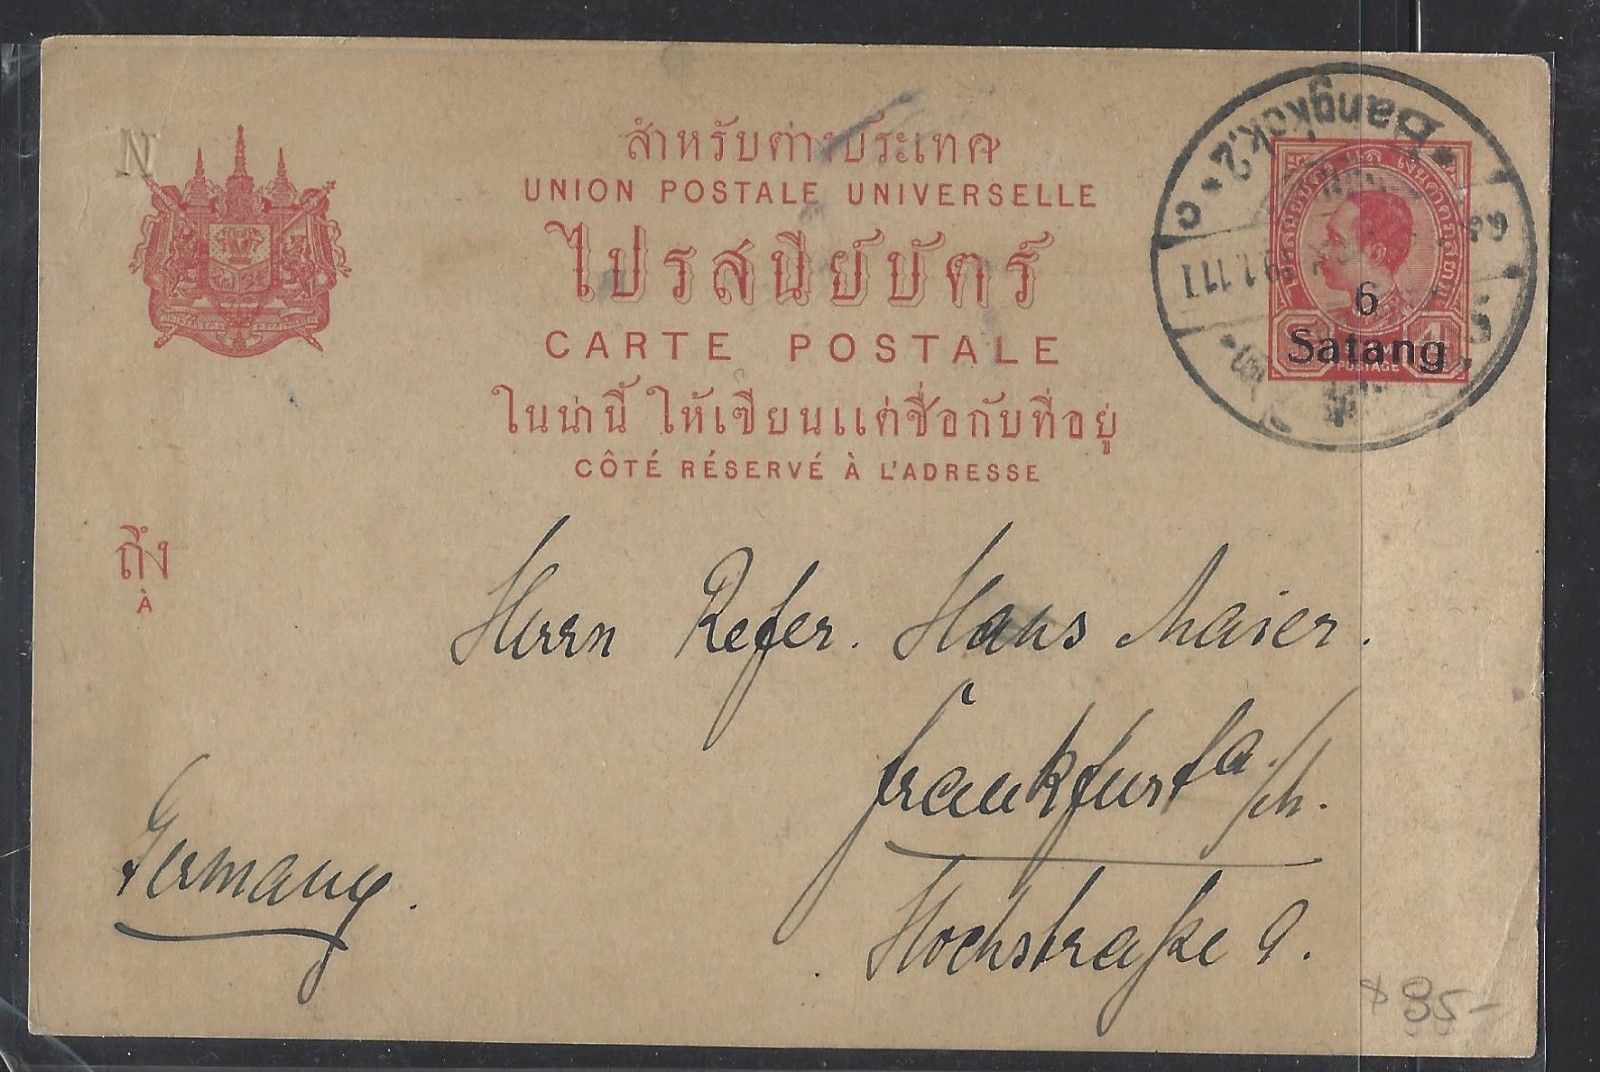 N
สำหรับต่างประเทศ
UNION POSTALE UNIVERSELLE
ไปรสนียบัตร์
CARTE POSTALE
ในน่านี้ ให้เขียนแต่ชื่อกับที่อยู่
CÔTÉ RÉSERVÉ À L'ADRESSE
Bangkok.2.
C
1.11.1
6
Satang
POSTAGE
ถึง
À
Herrn Refer. Hans Maier.
Frankfurt a/M.
Germany.
Hochstraße 9.
$ 95-